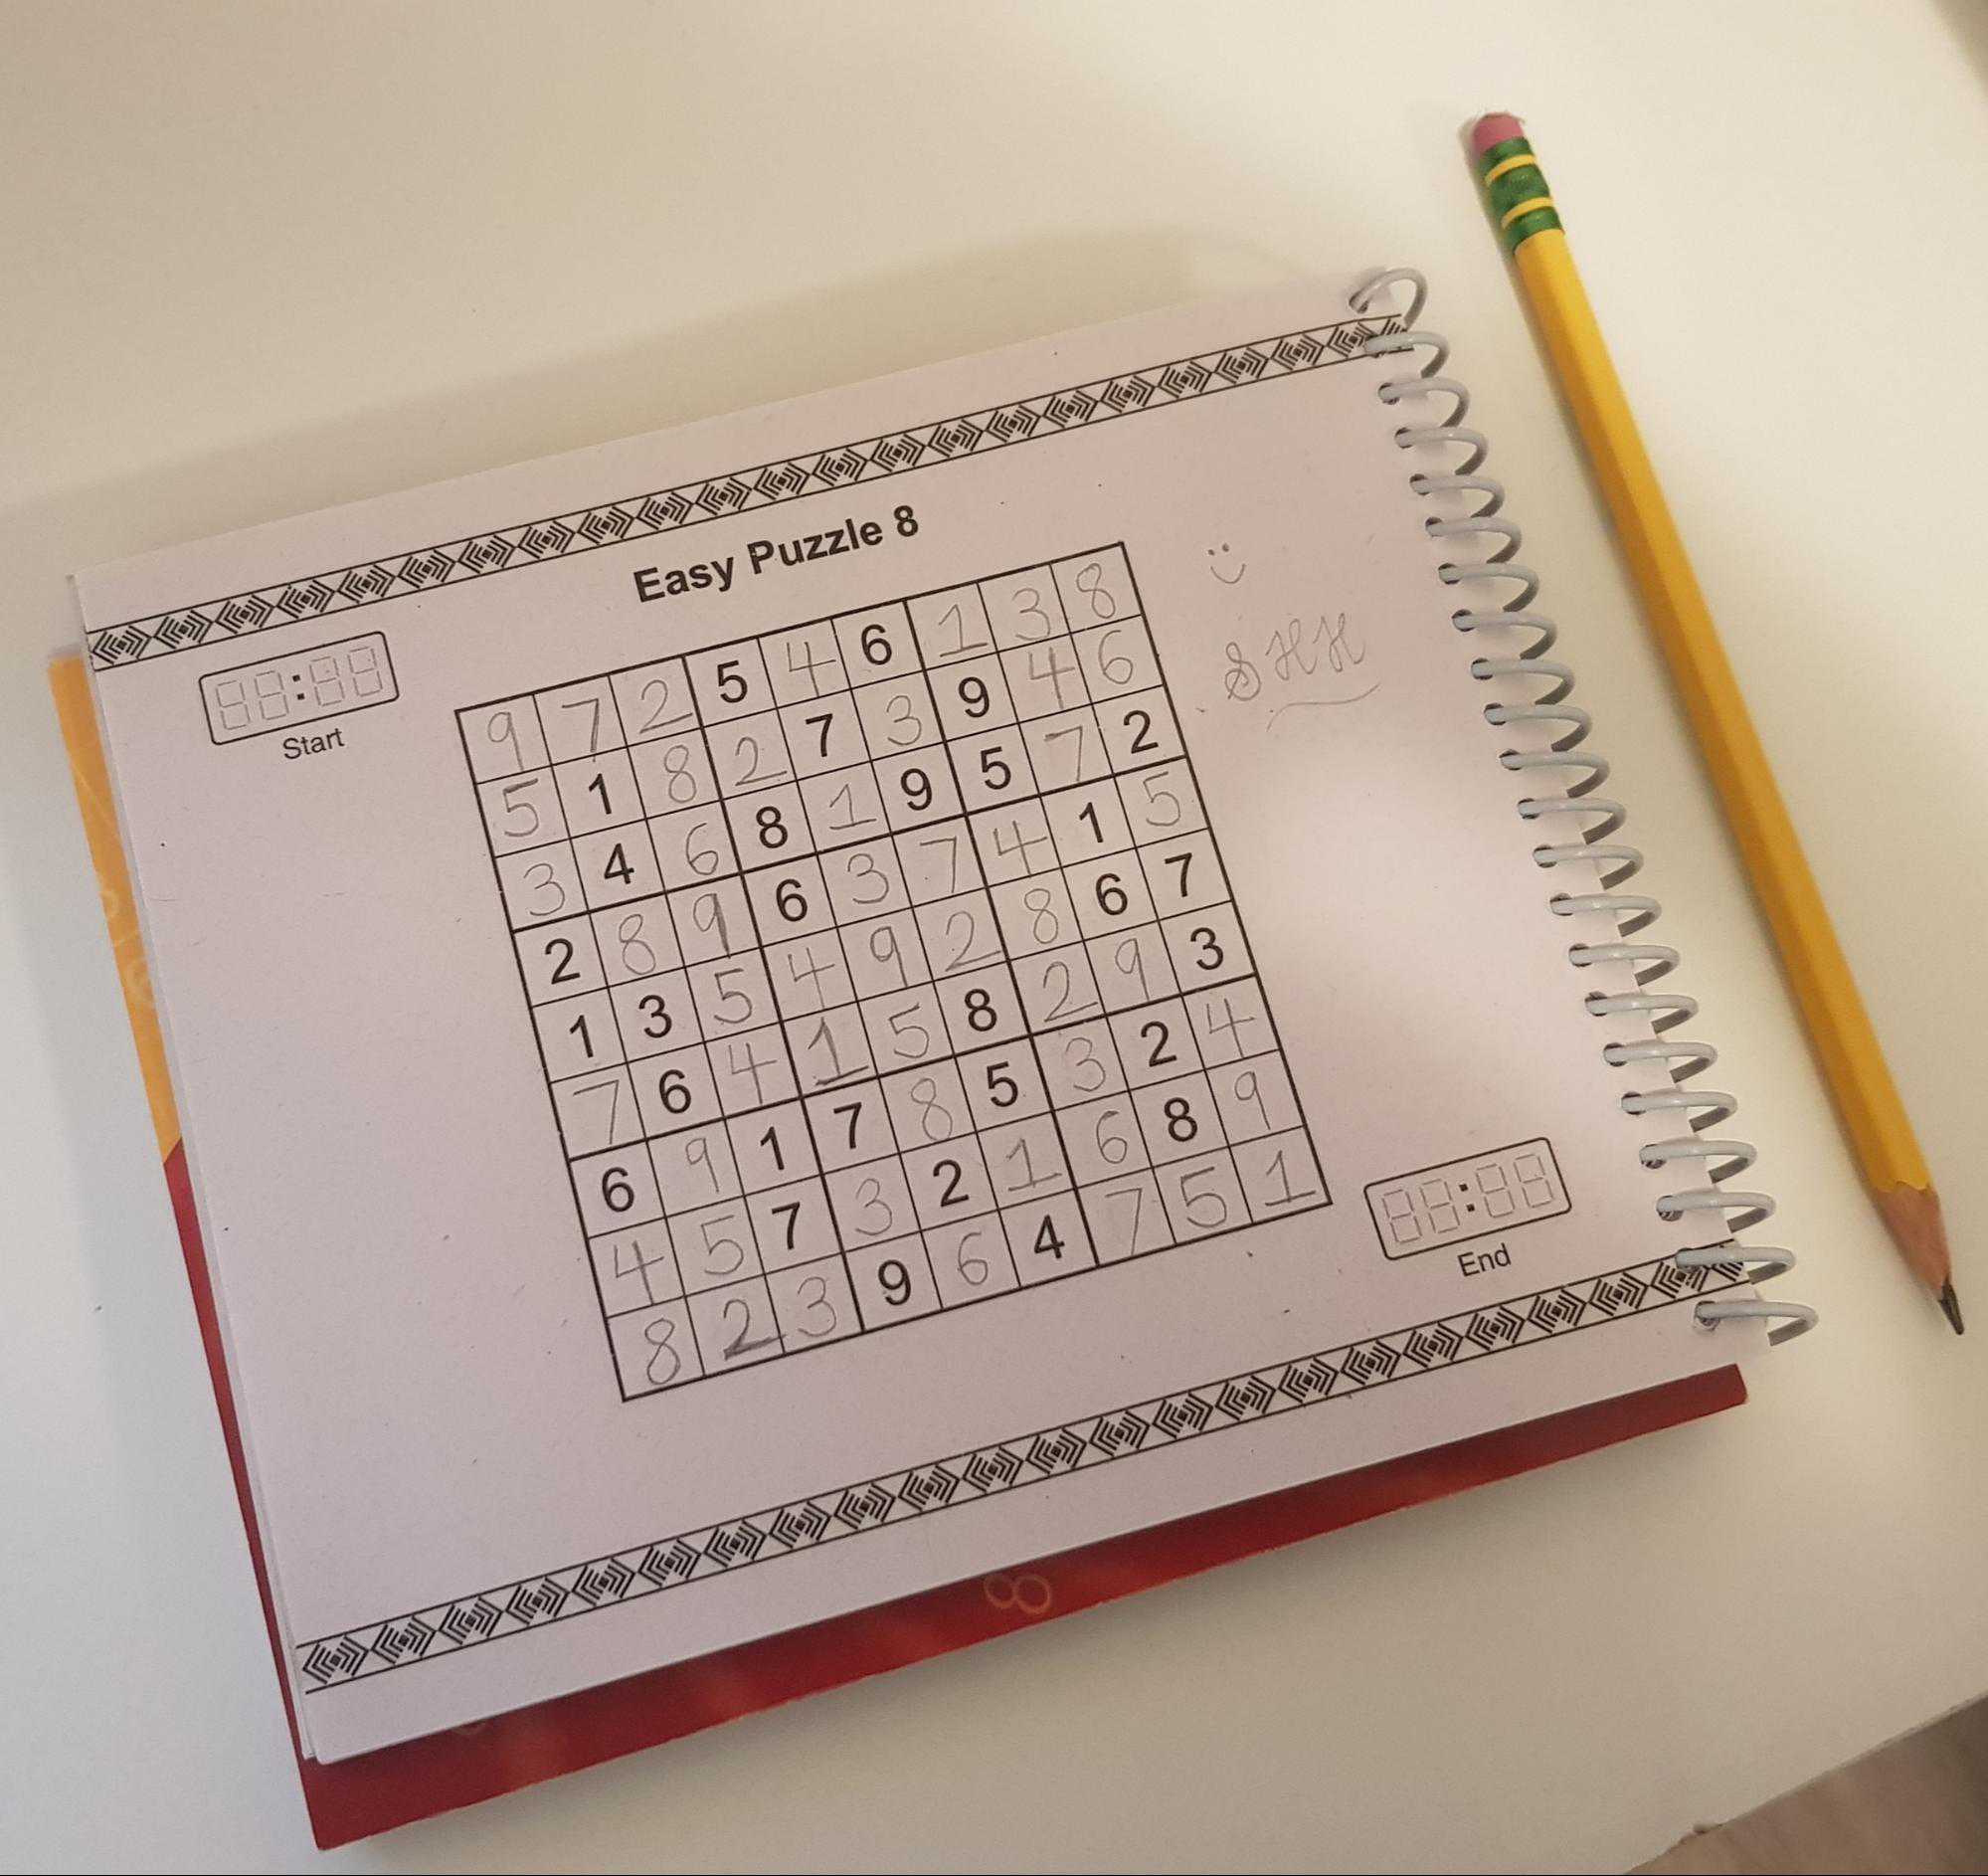 Easy Puzzle 8
88:88
Start
9 7 2 5 4 6 1 3 8
5 1 8 2 7 3 9 4 6
3 4 6 8 1 9 5 7 2
2 8 9 6 3 7 4 1 5
1 3 5 4 9 2 8 6 7
7 6 4 1 5 8 2 9 3
6 9 1 7 8 5 3 2 4
4 5 7 3 2 1 6 8 9
8 2 3 9 6 4 7 5 1
:)
SHH
88:88
End
8